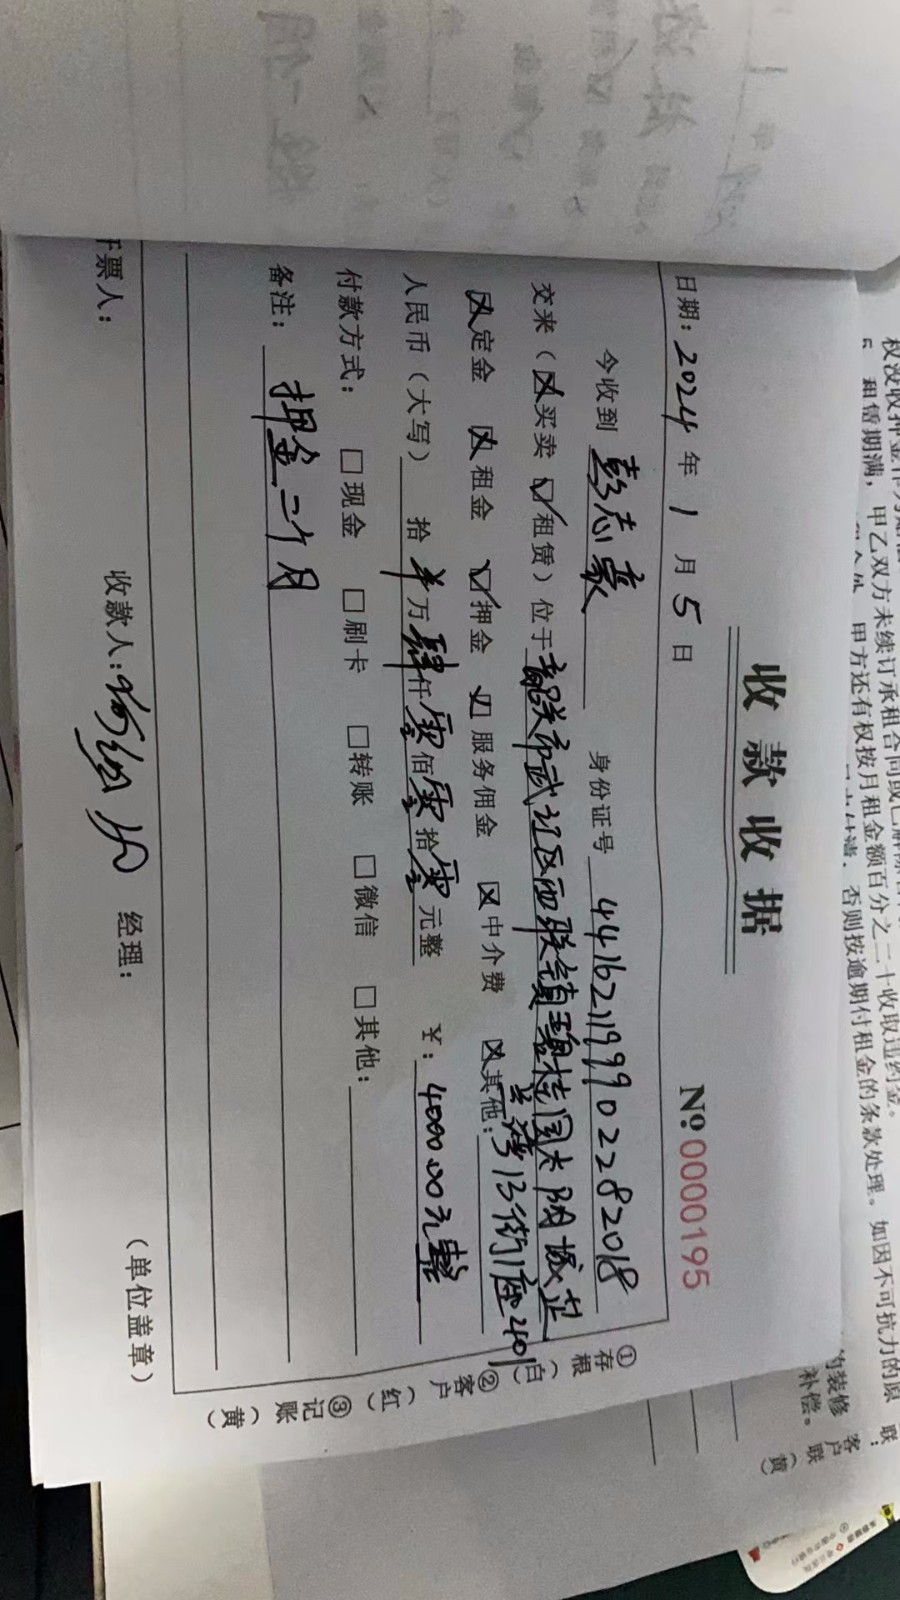 收款收据
No:0000195
日期:2024年1月5日
今收到 彭志豪 身份证号 441621199902282018
交来(☒买卖 ☑租赁)位于韶关市武江区西联镇碧桂园太阳城芷
兰湾13街1座401
☒定金 ☒租金 ☑押金 ☒服务佣金 ☒中介费 ☒其他:
人民币(大写) 拾 万肆仟零佰零拾零元整 ¥:4000.00元整
付款方式: □现金 □刷卡 □转账 □微信 □其他:
备注: 押金二个月
开票人: 收款人: 经理: (单位盖章)
①存根(白)②客户(红)③记账(黄)
5 租赁期满,甲乙双方未续订承租合同或已解除合
甲方还有权按月租金额百分之二十收取违约金。
否则按逾期付租金的条款处理。如因不可抗力的原
的装修
补偿。
客户联(黄)